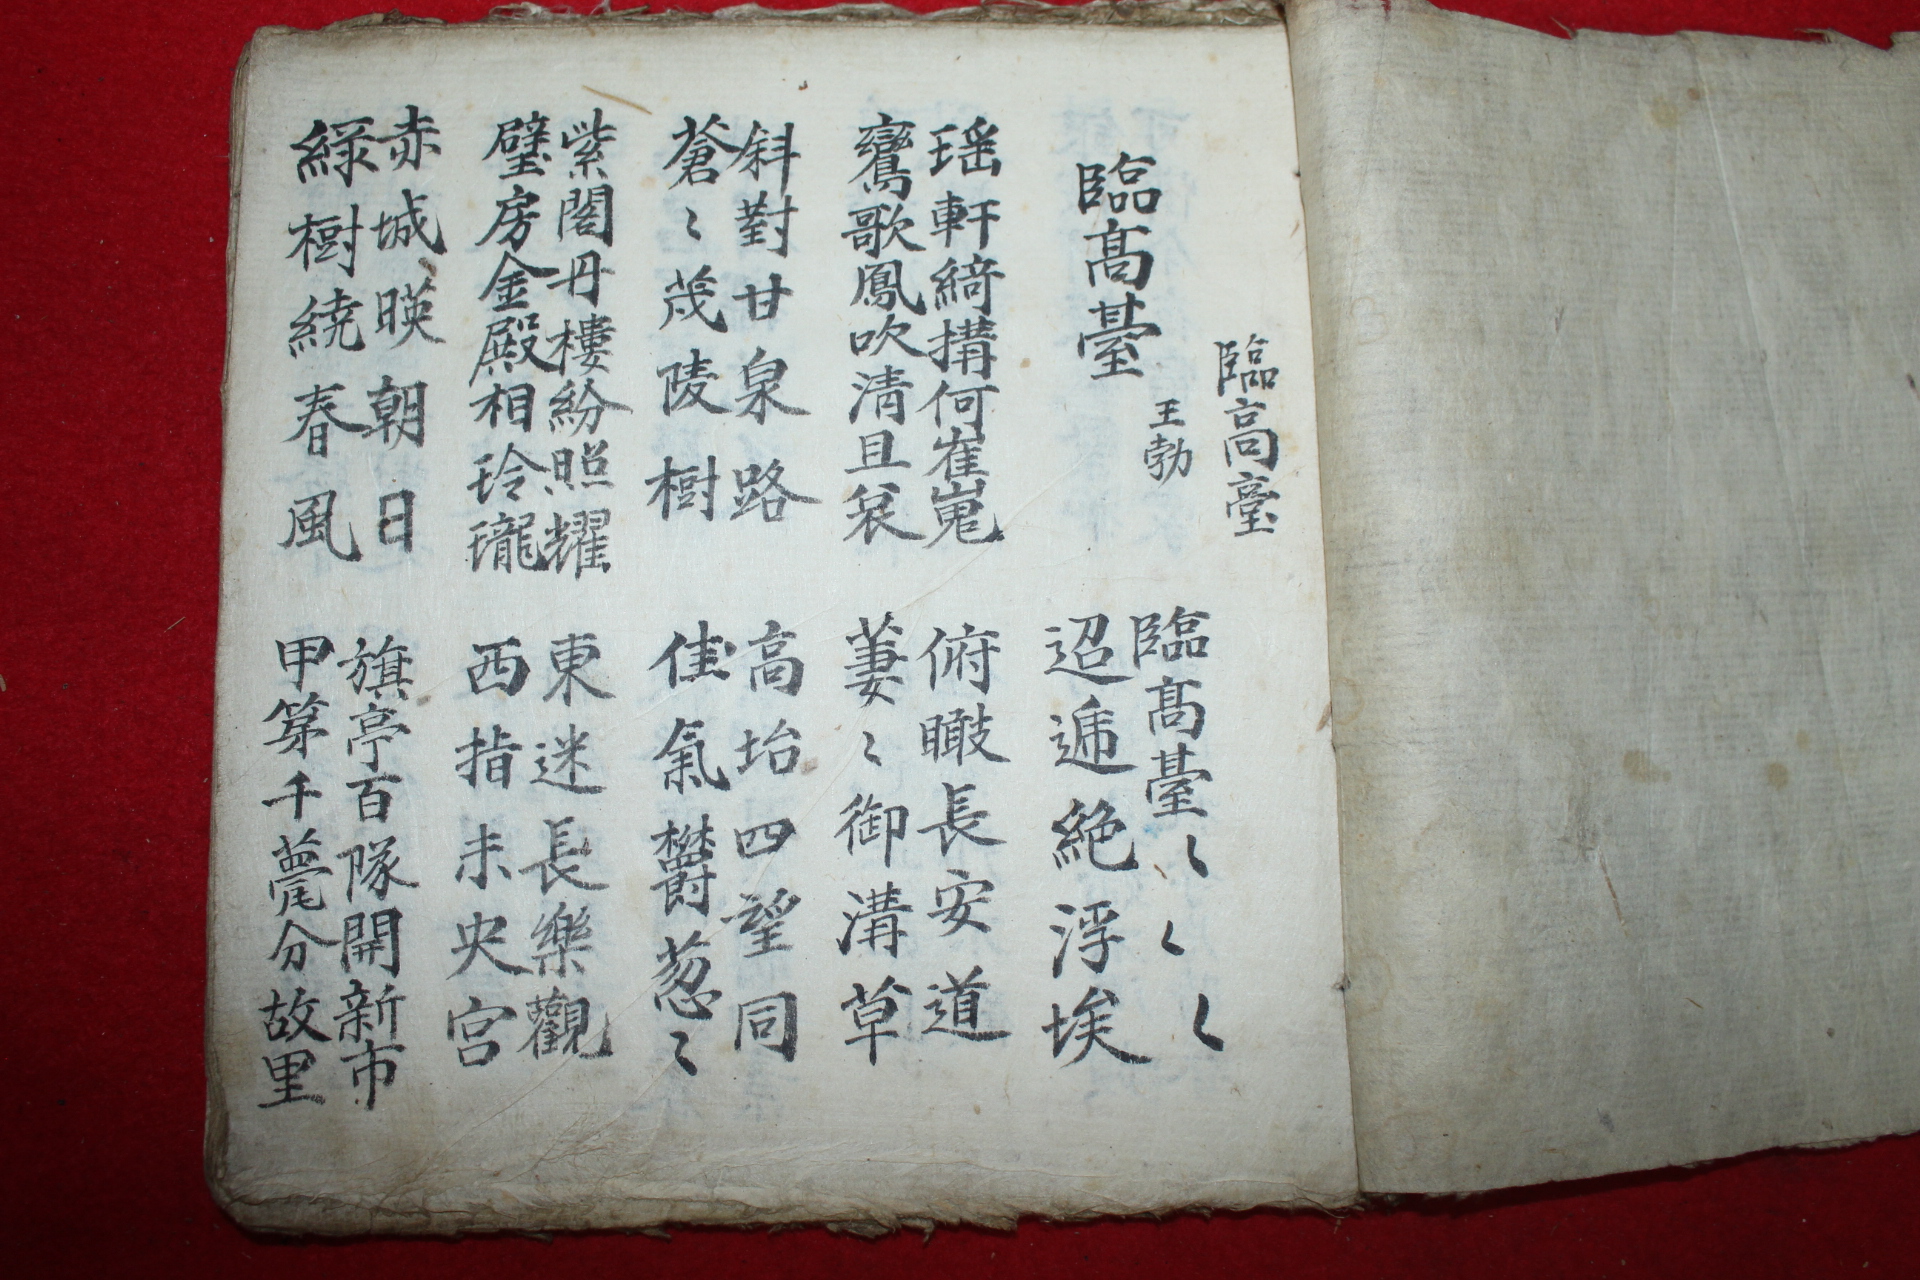 臨高臺
臨高臺
王勃
臨高臺〻〻〻
迢遞絶浮埃
瑶軒綺搆何崔嵬
鸞歌鳳吹清且哀
俯瞰長安道
萋〻御溝草
斜對甘泉路
蒼〻茂陵樹
高坮四望同
佳氣欝葱〻
紫閣丹樓紛照耀
璧房金殿相玲瓏
東迷長樂觀
西指未央宮
赤城暎朝日
綠樹繞春風
旗亭百隊開新市
甲第千甍分故里